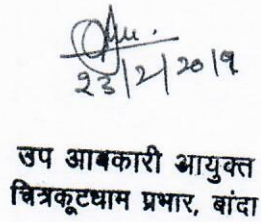 23/2/2019
उप आबकारी आयुक्त
चित्रकूटधाम प्रभार, बांदा